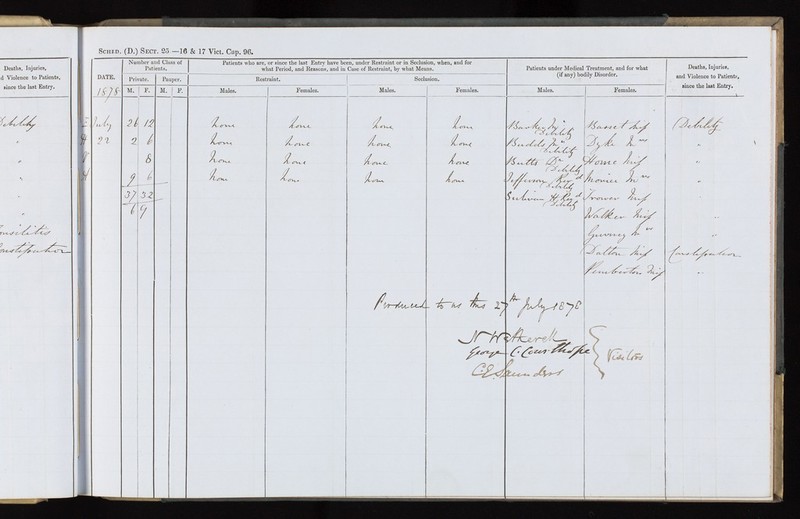 SCHED. (D.) SECT. 25 —16 & 17 Vict. Cap. 96.
Deaths, Injuries,
d Violence to Patients,
since the last Entry.
DATE.
Number and Class of Patients.
Private. Pauper.
M. F. M. F.
Patients who are, or since the last Entry have been, under Restraint or in Seclusion, when, and for
what Period, and Reasons, and in Case of Restraint, by what Means.
Restraint. Seclusion.
Males. Females. Males. Females.
Patients under Medical Treatment, and for what
(if any) bodily Disorder.
Males. Females.
Deaths, Injuries,
and Violence to Patients,
since the last Entry.
1878
July 26 12 none none none none Debility Basset Miss Debility
22 2 6 none none none none Debility Dyke Mrs "
" 8 none none none none Butts Dr Debility Home Miss "
" 9 6 none none none none Jefferson Revd Debility Monier Mrs "
37 32 Sulivan H. Revd Debility Trower Miss
69 Walker Miss "
Mrs "
Dalton Miss Constipation
Constipation
Pemberton Miss "
Produced to us this 27th July 1878
George C. Courthope
C. E. Saunders
Visitors